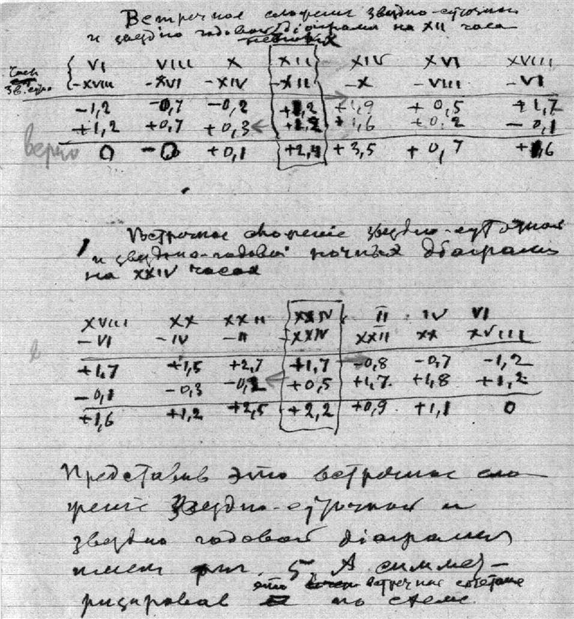 Встречное сложение звездно-суточной
и звездно годовой діаграмм на XII часа
Часы { VI VIII X XII XIV XVI XVIII
Зв. сут. -XVIII -XVI -XIV -XII -X -VIII -VI
-1,2 -0,7 -0,2 +1,2 +1,9 +0,5 +1,7
+1,2 +0,7 +0,3 +1,2 +1,6 +0,2 -0,1
верно 0 -0 +0,1 +2,4 +3,5 +0,7 +1,6
Встречное сложеніе звездно-суточная
и звездно-годовой ночных діаграмм
на XXIV часах
XVIII XX XXII XXIV II IV VI
-VI -IV -II -XXIV XXII XX XVIII
+1,7 +1,5 +2,7 +1,7 -0,8 -0,7 -1,2
-0,1 -0,3 -0,2 +0,5 +1,7 +1,8 +1,2
+1,6 +1,2 +2,5 +2,2 +0,9 +1,1 0
Представив это встречное сло-
жение Звездно-суточной и
звездно годовой діаграмм
имеем фиг. 5 А симмет-
это встречное сочетание
рицировав по схеме